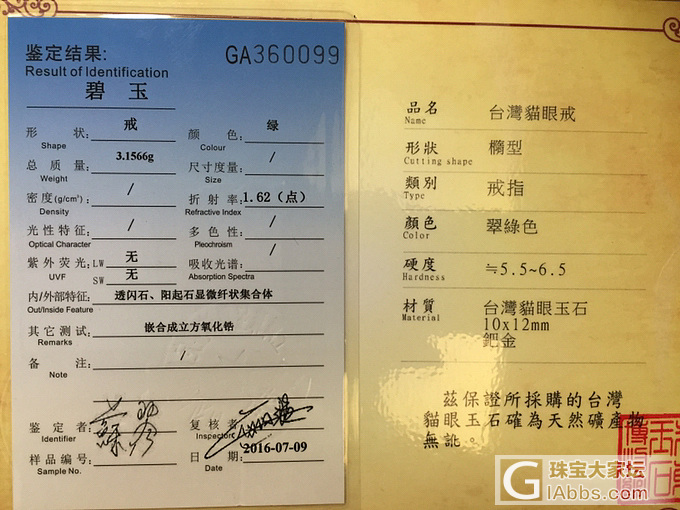 鉴定结果:
Result of Identification
GA360099
碧 玉
形 状: 戒
Shape
颜 色: 绿
Colour
总 质 量: 3.1566g
Weight
尺寸度量: /
Size
密度(g/cm³) /
Density
折 射 率: 1.62（点）
Refractive Index
光性特征: /
Optical Character
多 色 性: /
Pleochroism
紫外荧光: LW 无
UVF SW 无
吸收光谱: /
Absorption Spectra
内/外部特征: 透闪石、阳起石显微纤状集合体
Out/Inside Feature
其它测试: 嵌合成立方氧化锆
Remarks
备 注: /
Note
鉴 定 者:
Identifier
复 核 者
Inspector
样品编号:
Sample No.
日 期: 2016-07-09
Date
品名 台灣貓眼戒
Name
形狀 橢型
Cutting shape
類別 戒指
Type
顏色 翠綠色
Color
硬度 ≒5.5~6.5
Hardness
材質 台灣貓眼玉石
Material 10x12mm
鈀金
茲保證所採購的台灣
貓眼玉石確為天然礦產物
無訛。
珠宝大家坛
GIAbbs.com